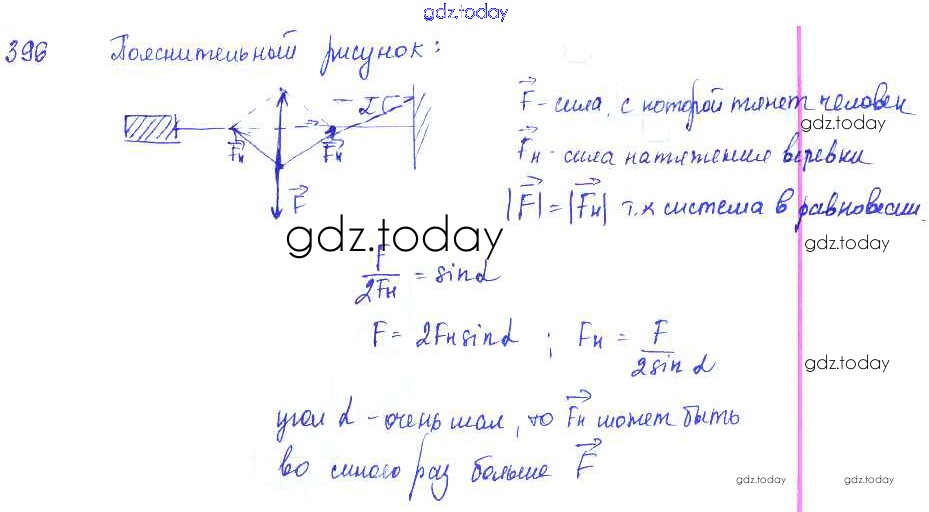 gdz.today
396 Пояснительный рисунок:
α
F⃗н F⃗н
F⃗
F⃗ - сила, с которой тянет человек
gdz.today
F⃗н - сила натяжения веревки
|F⃗| = |F⃗н| т.к система в равновесии.
gdz.today
gdz.today
F/2Fн = sinα
F = 2Fнsinα ; Fн = F/2sinα
gdz.today
угол α - очень мал, то F⃗н может быть
во много раз больше F⃗
gdz.today gdz.today